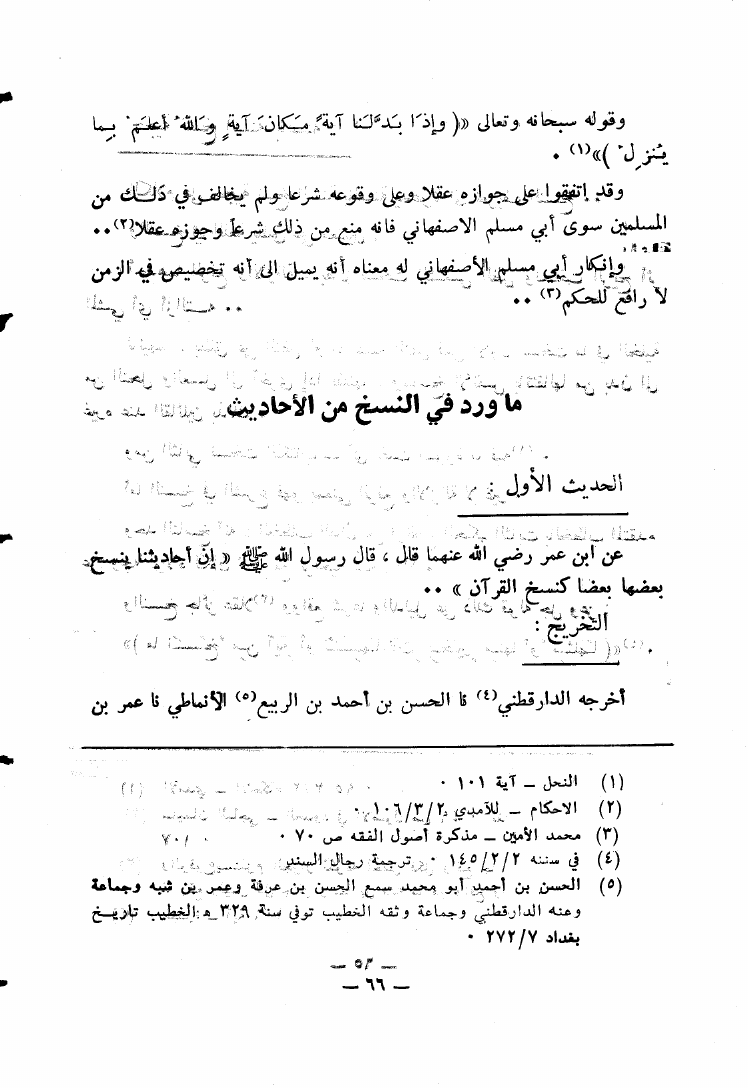 وقوله سبحانه وتعالى «( وإذا بدَّلنا آيةً مكانَ آيةٍ واللهُ أعلمُ بما
ينزلُ )»(١) .
وقد إتفقوا على جوازه عقلا وعلى وقوعه شرعا ولم يخالف في ذلك من
المسلمين سوى أبي مسلم الاصفهاني فانه منع من ذلك شرعاً وجوزه عقلا(٢)..
وإنكار أبي مسلم الأصفهاني له معناه أنه يميل الى أنه تخصيص في الزمن
لا رافع للحكم(٣) ..
ما ورد في النسخ من الأحاديث
الحديث الأول :
عن ابن عمر رضي الله عنهما قال ، قال رسول الله ﷺ « إنّ أحاديثنا ينسخ
بعضها بعضا كنسخ القرآن » ..
التخريج :
أخرجه الدارقطني(٤) نا الحسن بن أحمد بن الربيع(٥) الأنماطي نا عمر بن
(١) النحل ــ آية ١٠١ .
(٢) الاحكام ــ للآمدي ١٠٦/٣/٢ .
(٣) محمد الأمين ــ مذكرة أصول الفقه ص ٧٠ .
(٤) في سننه ١٤٥/٢/٢ . ترجمة رجال السند
(٥) الحسن بن أحمد أبو محمد سمع الحسن بن عرفة وعمر بن شبه وجماعة
وعنه الدارقطني وجماعة وثقه الخطيب توفي سنة ٣٢٩ هـ الخطيب تاريخ
بغداد ٢٧٢/٧ .
ــ ٦٦ ــ